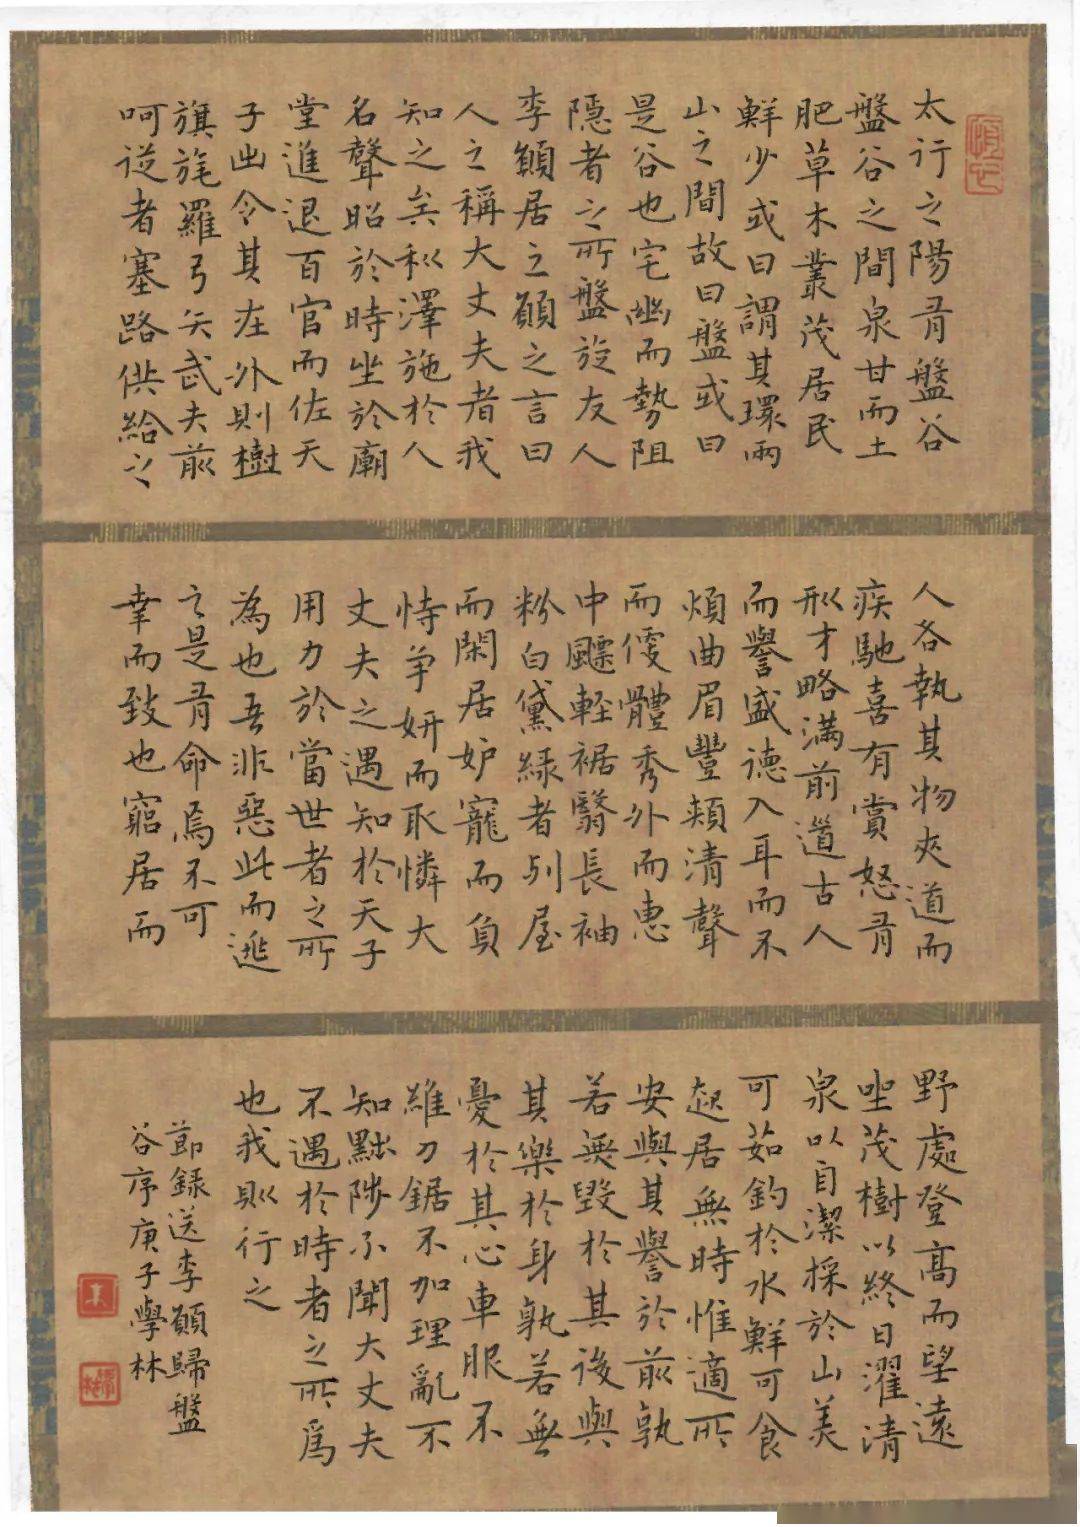 太行之陽有盤谷
盤谷之間泉甘而土
肥草木叢茂居民
鮮少或曰謂其環兩
山之間故曰盤或曰
是谷也宅幽而勢阻
隱者之所盤旋友人
李願居之願之言曰
人之稱大丈夫者我
知之矣利澤施於人
名聲昭於時坐於廟
堂進退百官而佐天
子出令其在外則樹
旗旄羅弓矢武夫前
呵從者塞路供給之
人各執其物夾道而
疾馳喜有賞怒有
刑才略滿前道古人
而譽盛德入耳而不
煩曲眉豐頰清聲
而便體秀外而惠
中飄輕裾翳長袖
粉白黛綠者列屋
而閑居妒寵而負
恃爭妍而取憐大
丈夫之遇知於天子
用力於當世者之所
為也吾非惡此而逃
之是有命焉不可
幸而致也窮居而
野處登高而望遠
坐茂樹以終日濯清
泉以自潔採於山美
可茹釣於水鮮可食
起居無時惟適所
安與其譽於前孰
若無毀於其後與
其樂於身孰若無
憂於其心車服不
維刀鋸不加理亂不
知黜陟不聞大丈夫
不遇於時者之所為
也我則行之
節錄送李願歸盤
谷序庚子學林